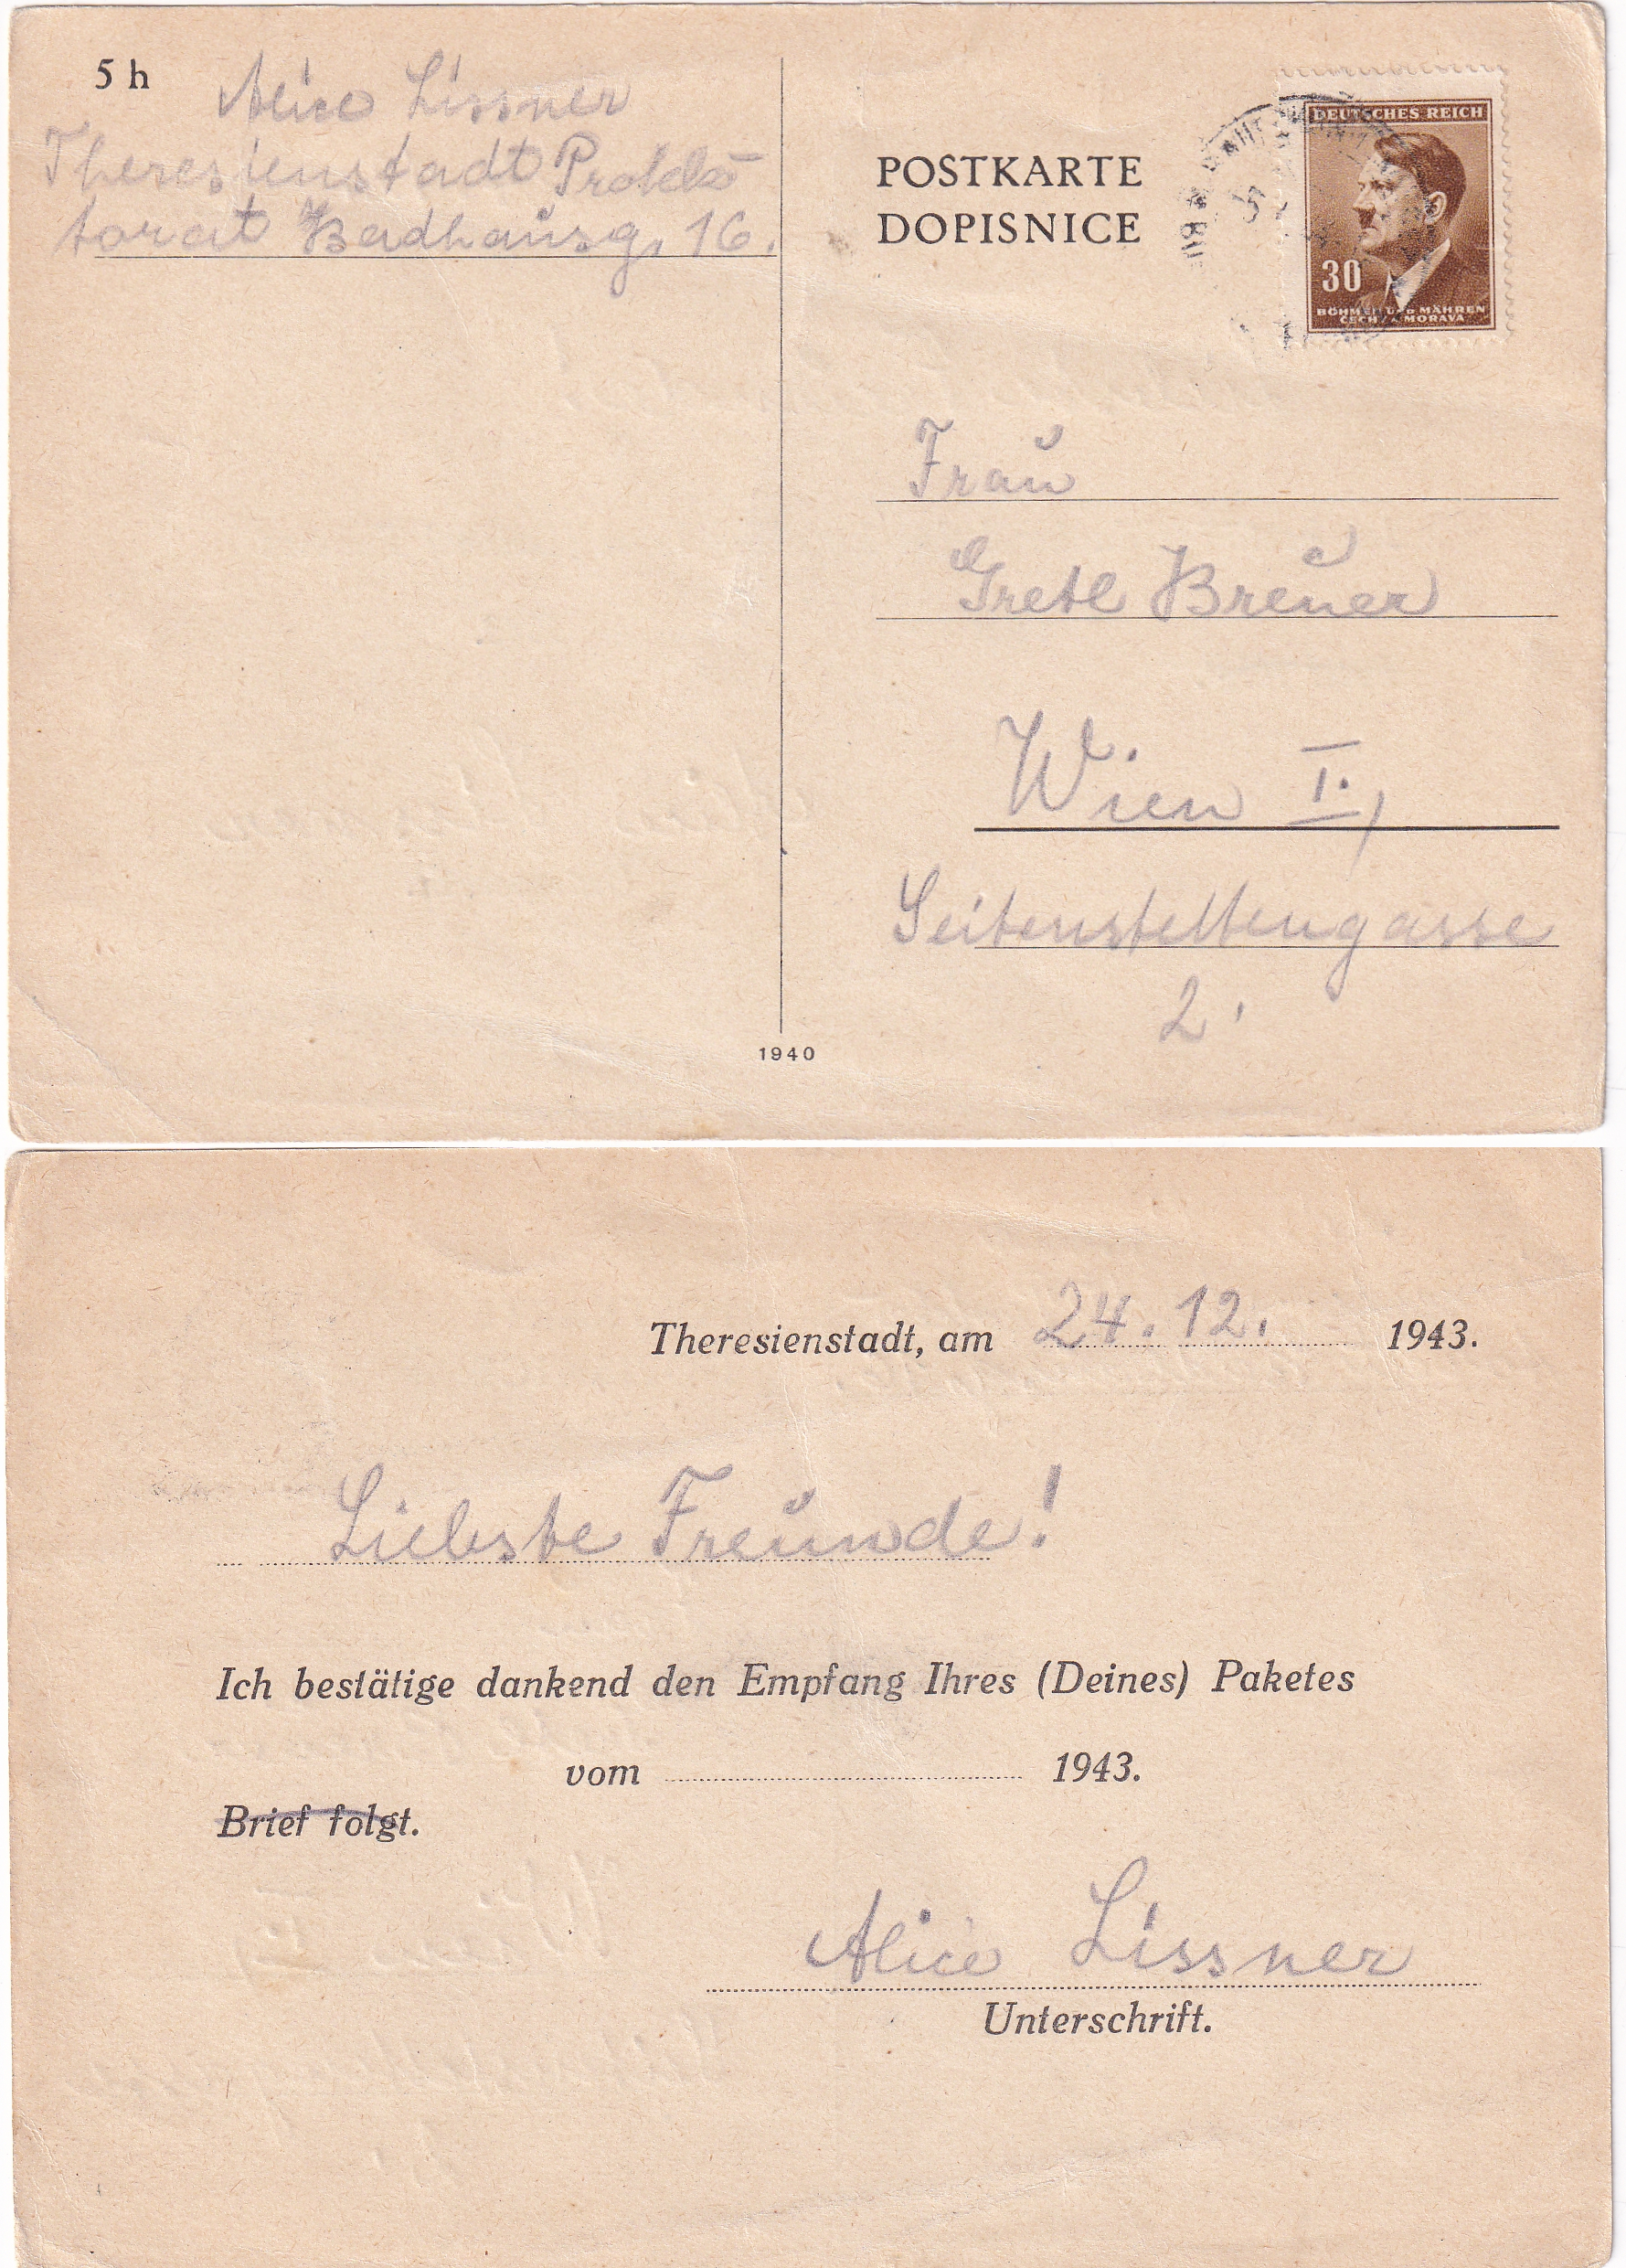 5 h
Alice Lissner
Theresienstadt Protek
torat Badhausg. 16.
POSTKARTE
DOPISNICE
DEUTSCHES REICH
30
BÖHMEN UND MÄHREN
ČECHY A MORAVA
Frau
Gretl Breuer
Wien I.,
Seitenstettengasse
2.
1940
Theresienstadt, am 24. 12. 1943.
Liebste Freunde!
Ich bestätige dankend den Empfang Ihres (Deines) Paketes
vom 1943.
Brief folgt.
Alice Lissner
Unterschrift.